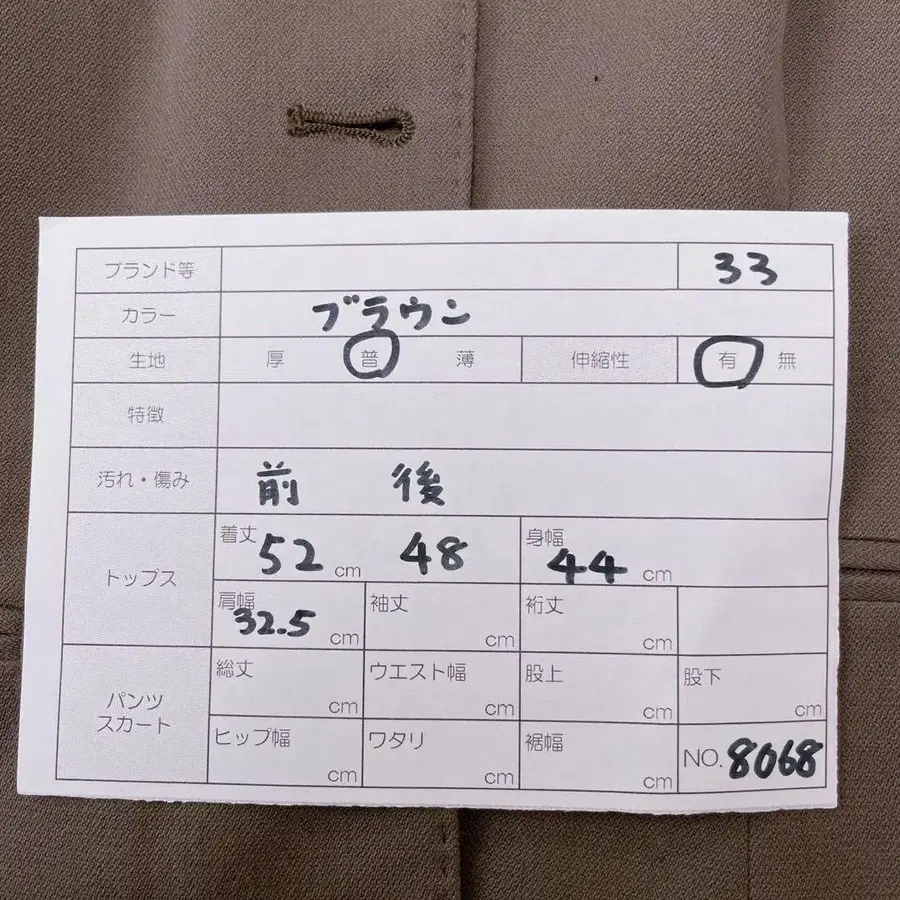 ブランド等 33
カラー ブラウン
生地 厚 普 薄 伸縮性 有 無
特徴
汚れ・傷み 前 後
トップス 着丈 52 cm 48 身幅 44 cm
肩幅 32.5 cm 袖丈 cm 裄丈 cm
パンツ
スカート
総丈 cm ウエスト幅 cm 股上 cm 股下 cm
ヒップ幅 cm ワタリ cm 裾幅 cm NO. 8068